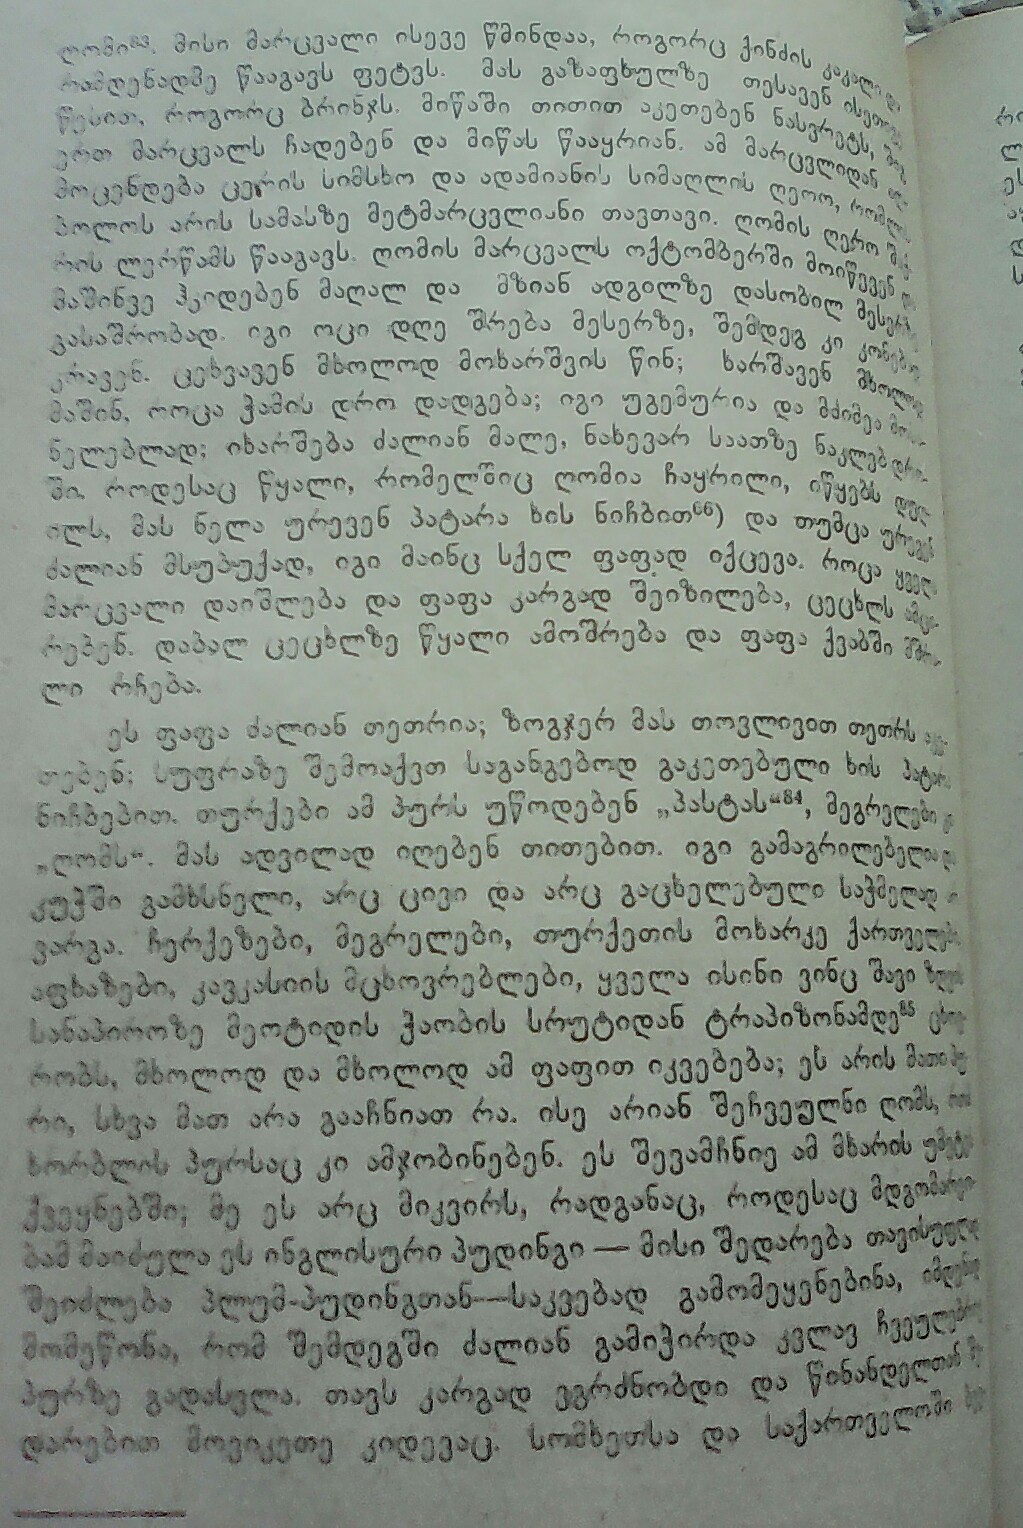 ღომი⁸³. მისი მარცვალი ისევე წმინდაა, როგორც ქინძის კაკალი და
რამდენადმე წააგავს ფეტვს. მას გაზაფხულზე თესავენ ისეთივე
წესით, როგორც ბრინჯს. მიწაში თითით აკეთებენ ნასვრეტს, შიგ
ერთ მარცვალს ჩადებენ და მიწას წააყრიან. ამ მარცვლიდან
მოცენდება ცერის სიმსხო და ადამიანის სიმაღლის ღერო, რომლის
ბოლოს არის სამასზე მეტმარცვლიანი თავთავი. ღომის ღერო
რის ლერწამს წააგავს. ღომის მარცვალს ოქტომბერში მოიწევენ და
მაშინვე ჰკიდებენ მაღალ და მზიან ადგილზე დასობილ მესერზე
გასაშრობად. იგი ოცი დღე შრება მესერზე, შემდეგ კი კონებად
კრავენ. ცეხვავენ მხოლოდ მოხარშვის წინ; ხარშავენ მხოლოდ
მაშინ, როცა ჭამის დრო დადგება; იგი უგემურია და მძიმეა
ნელებლად; იხარშება ძალიან მალე, ნახევარ საათზე ნაკლებ დრო-
ში. როდესაც წყალი, რომელშიც ღომია ჩაყრილი, იწყებს დუღ-
ილს, მას ნელა ურევენ პატარა ხის ნიჩბით⁶⁶) და თუმცა ურევენ
ძალიან მსუბუქად, იგი მაინც სქელ ფაფად იქცევა. როცა ყველა
მარცვალი დაიშლება და ფაფა კარგად შეიზილება, ცეცხლს ამცი-
რებენ. დაბალ ცეცხლზე წყალი ამოშრება და ფაფა ქვაბში მშრა-
ლი რჩება.
ეს ფაფა ძალიან თეთრია; ზოგჯერ მას თოვლივით თეთრს აკე-
თებენ; სუფრაზე შემოაქვთ საგანგებოდ გაკეთებული ხის პატარა
ნიჩბებით. თურქები ამ პურს უწოდებენ „პასტას“⁸⁴, მეგრელები კი
„ღომს“. მას ადვილად იღებენ თითებით. იგი გამაგრილებელია და
კუჭში გამხსნელი, არც ცივი და არც გაცხელებული საჭმელად
ვარგა. ჩერქეზები, მეგრელები, თურქეთის მოხარკე ქართველები,
აფხაზები, კავკასიის მცხოვრებლები, ყველა ისინი ვინც შავი ზღვის
სანაპიროზე მეოტიდის ჭაობის სრუტიდან ტრაპიზონამდე⁸⁵ ცხოვ-
რობს, მხოლოდ და მხოლოდ ამ ფაფით იკვებება; ეს არის მათი პუ-
რი, სხვა მათ არა გააჩნიათ რა. ისე არიან შეჩვეულნი ღომს, რომ
ხორბლის პურსაც კი ამჯობინებენ. ეს შევამჩნიე ამ მხარის უმეტეს
ქვეყნებში; მე ეს არც მიკვირს, რადგანაც, როდესაც მდგომარეო-
ბამ მაიძულა ეს ინგლისური პუდინგი — მისი შედარება თავისუფლად
შეიძლება პლუმ-პუდინგთან—საკვებად გამომეყენებინა, იმდენად
მომეწონა, რომ შემდეგში ძალიან გამიჭირდა კვლავ ჩვეულებრივ
პურზე გადასვლა. თავს კარგად ვგრძნობდი და წინანდელთან შე-
დარებით მოვიკეთე კიდევაც. სომხეთსა და საქართველოში